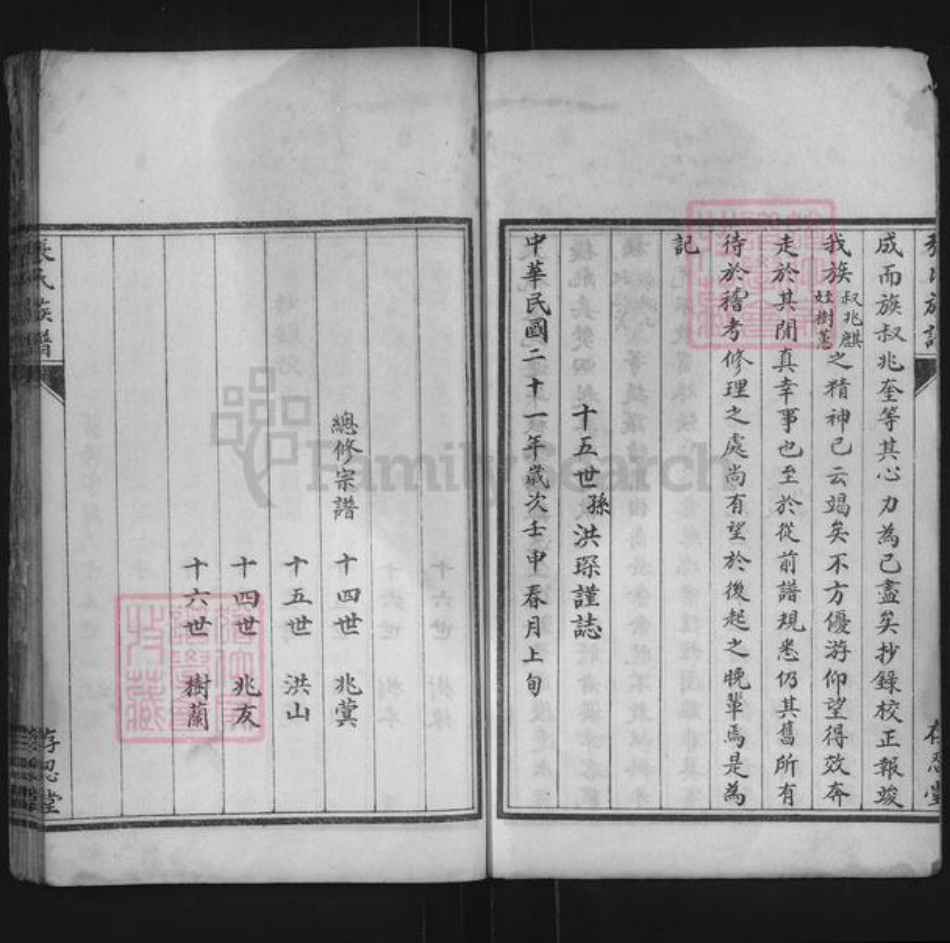 成而族叔兆奎等其心力為已盡矣抄錄校正報竣
我族叔兆麒姪樹蕙之精神已云竭矣不方優游仰望得效奔
走於其閒真幸事也至於從前譜規悉仍其舊所有
待於稽考修理之處尚有望於後起之晚輩焉是為
記
十五世孫洪琛謹誌
中華民國二十一年歲次壬申春月上旬
總修宗譜 十四世 兆蓂
十五世 洪山
十四世 兆友
十六世 樹蘭
張氏族譜
存恕堂
FamilySearch